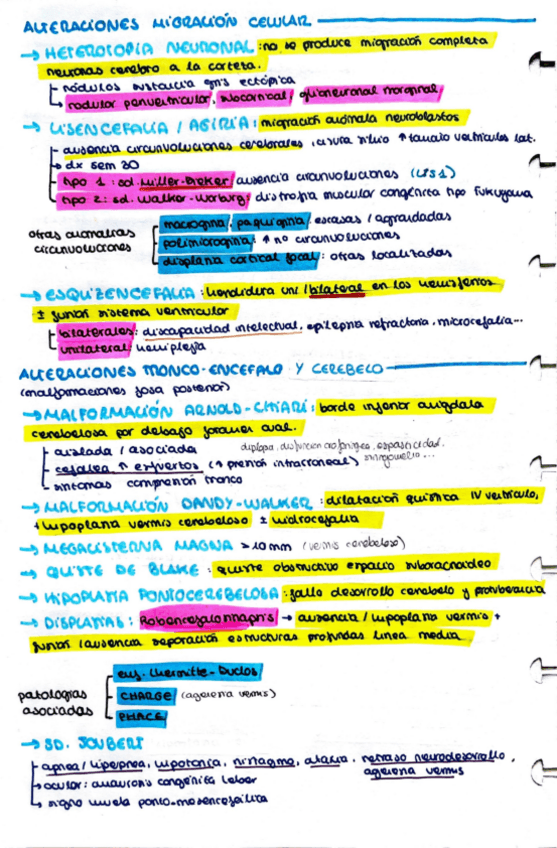 ALTERACIONES MIGRACIÓN CELULAR
→ HETEROTOPÍA NEURONAL: no se produce migración completa
neuronas cerebro a la corteza.
- nódulos sustancia gris ectópica
↳ nodular periventricular, subcortical, glioneuronal marginal.
→ LISENCEFALIA / AGIRIA: migración anómala neuroblastos
- ausencia circunvoluciones cerebrales, cisura silvio ↑ tamaño ventrículos lat.
→ dx sem 30
- tipo 1: sd. Miller-Dieker ausencia circunvoluciones (LIS1)
- tipo 2: sd. Walker-Warburg: distrofia muscular congénita tipo Fukuyama
otras anomalías
circunvoluciones
macrogiria, paquigiria: escasas / agrandadas
polimicrogiria: ↑ nº circunvoluciones
displasia cortical focal: otras localizadas
→ ESQUIZENCEFALIA: hendidura uni/bilateral en los hemisferios
± fusión sistema ventricular
- bilaterales: discapacidad intelectual, epilepsia refractaria, microcefalia...
- unilateral: hemiplejia
ALTERACIONES TRONCO-ENCÉFALO Y CEREBELO
(malformaciones fosa posterior)
→ MALFORMACIÓN ARNOLD-CHIARI: borde inferior amígdala
cerebelosa por debajo foramen oval.
- aislada / asociada
diplopia, disfunción orofaríngea, espasticidad.
- cefalea ↑ esfuerzos (↑ presión intracraneal) siringomielia...
- síntomas compresión tronco
→ MALFORMACIÓN DANDY-WALKER: dilatación quística IV ventrículo,
+ hipoplasia vermis cerebeloso ± hidrocefalia
→ MEGACISTERNA MAGNA > 10mm (vermis cerebeloso)
→ QUISTE DE BLAKE: quiste obstructivo espacio subaracnoideo
→ HIPOPLASIA PONTOCEREBELOSA: fallo desarrollo cerebelo y protuberancia
→ DISPLASIAS: Rombencefalosinapsis → ausencia / hipoplasia vermis +
fusión / ausencia separación estructuras profundas línea media
patologías
asociadas
enf. Lhermitte-Duclos
CHARGE (agenesia vermis)
PHACE
→ SD. JOUBERT
- apnea / hiperpnea, hipotonía, nistagmo, ataxia, retraso neurodesarrollo,
agenesia vermis
→ ocular: amaurosis congénita Leber
↳ signo muela ponto-mesencefálica